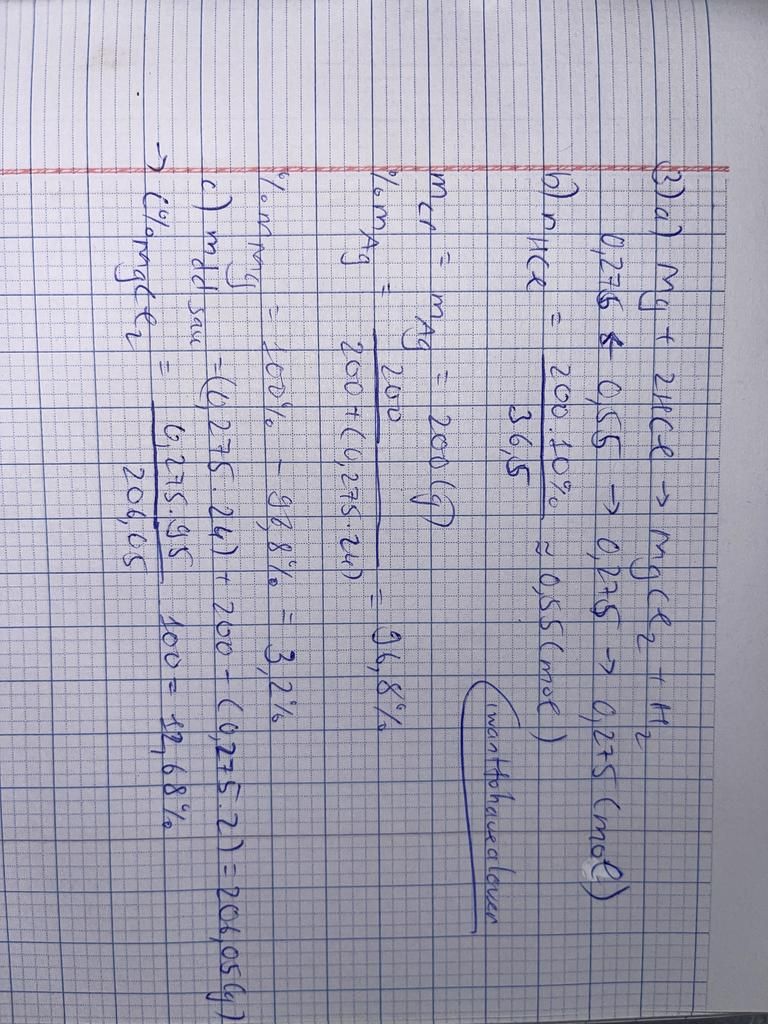 3) a) Mg + 2HCl → MgCl2 + H2
0,275 ← 0,55 → 0,275 → 0,275 (mol)
b) nHCl = 200.10% / 36,5 ≈ 0,55 (mol)
iwanttohavealover
mCr = mAg = 200 (g)
%mAg = 200 / 200 + (0,275.24) = 96,8%
%mMg = 100% - 96,8% = 3,2%
c) mdd sau = (0,275.24) + 200 - (0,275.2) = 206,05 (g)
→ C%MgCl2 = 0,275.95 / 206,05 . 100 = 12,68%